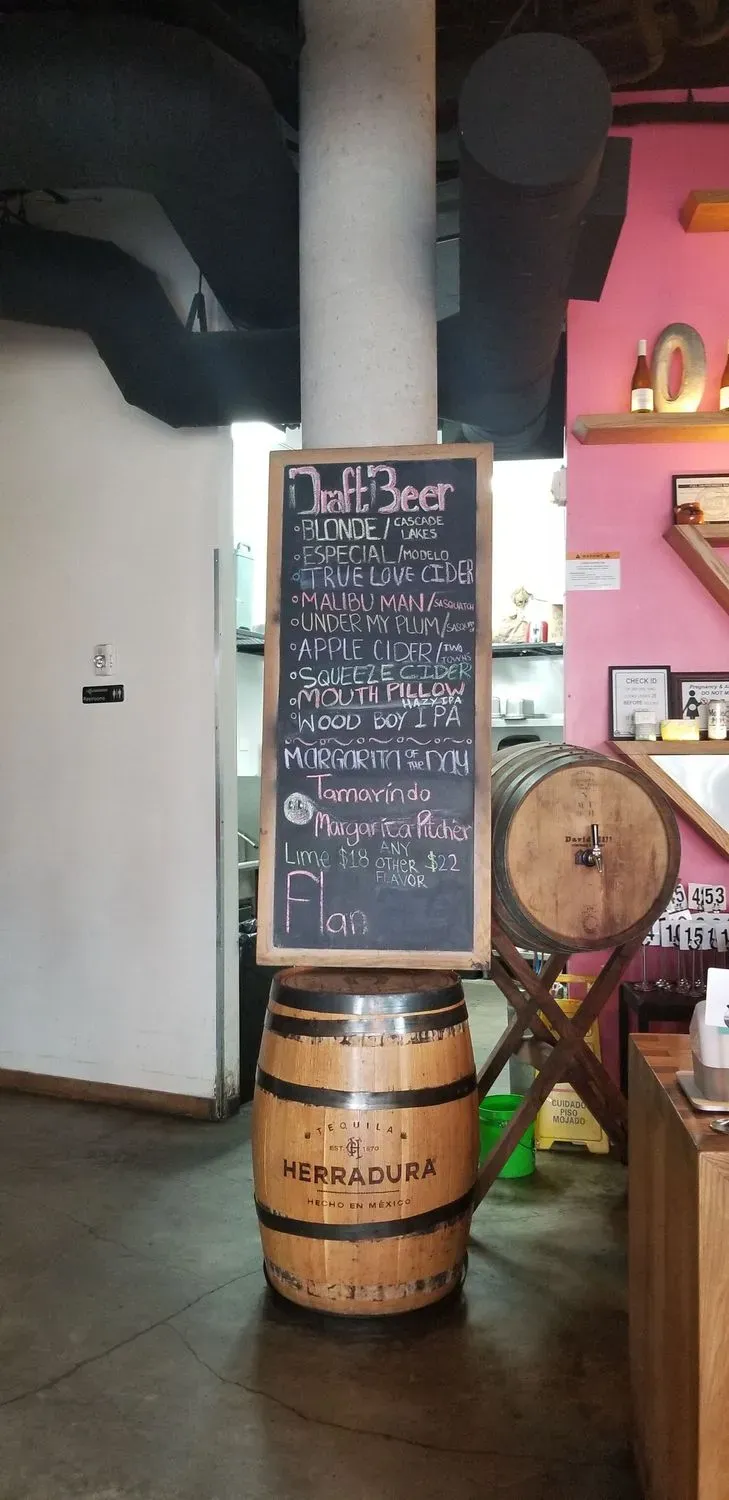 Draft Beer
BLONDE/ CASCADE LAKES
ESPECIAL/MODELO
TRUE LOVE CIDER
MALIBU MAN/SASQUATCH
UNDER MY PLUM/
APPLE CIDER/ TWO TOWNS
SQUEEZE CIDER
MOUTH PILLOW
HAZY IPA
WOOD BOY IPA
MARGARITA OF THE DAY
Tamarindo
Margarita Pitcher
Lime $18 ANY OTHER FLAVOR $22
Flan
TEQUILA
EST. 1870
HERRADURA
HECHO EN MÉXICO
Restrooms
0
WARNING
CHECK ID
BEFORE
Pregnancy & A
DO NOT M
45
453
151
CUIDADO
PISO
MOJADO